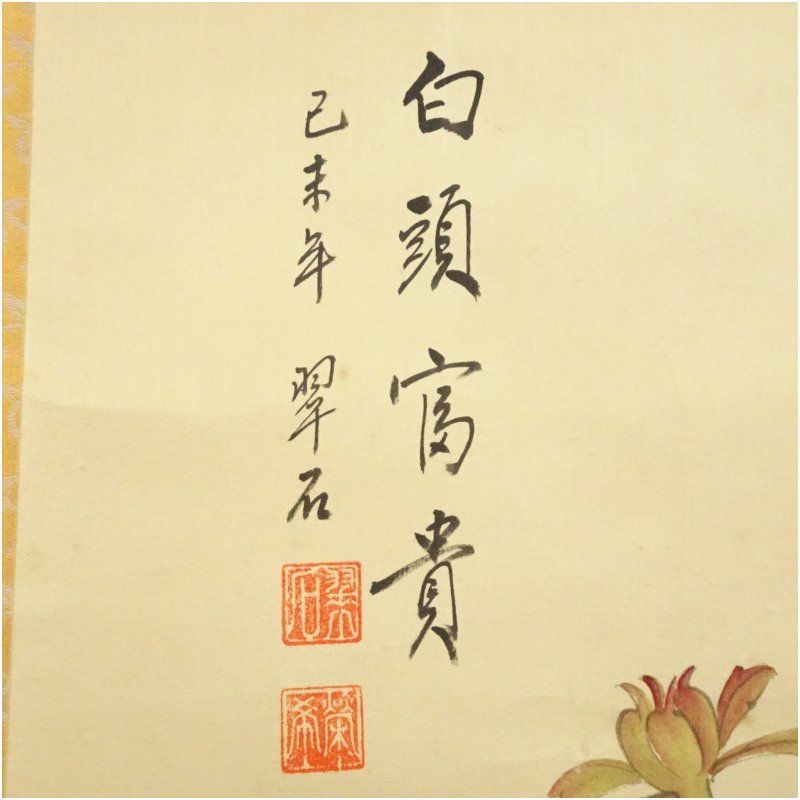 白頭富貴
己未年 翠石
翠石